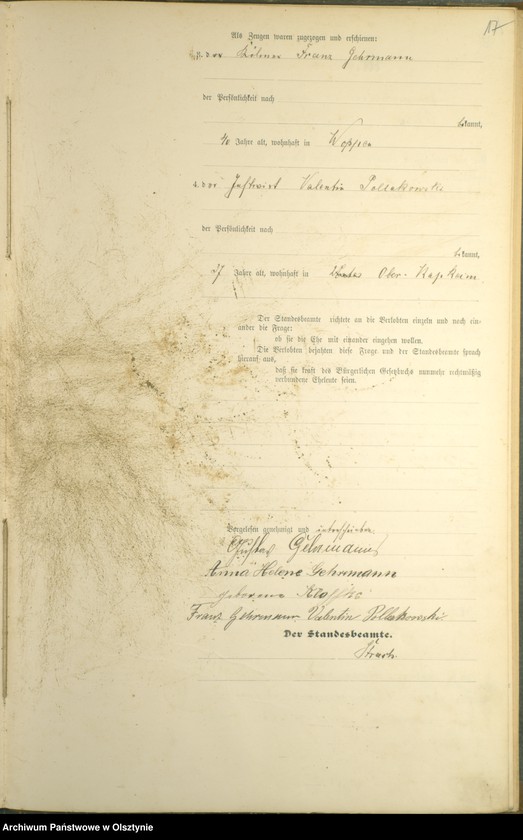 17
Als Zeugen waren zugezogen und erschienen:
3. der Kölmer Franz Gehrmann
der Persönlichkeit nach
bekannt,
40 Jahre alt, wohnhaft in Woppen
4. der Gastwirt Valentin Pollakowski
der Persönlichkeit nach
bekannt,
27 Jahre alt, wohnhaft in Ober-Kapkeim
Der Standesbeamte richtete an die Verlobten einzeln und nach ein-
ander die Frage:
ob sie die Ehe mit einander eingehen wollen.
Die Verlobten bejahten diese Frage und der Standesbeamte sprach
hierauf aus,
daß sie kraft des Bürgerlichen Gesetzbuchs nunmehr rechtmäßig
verbundene Eheleute seien.
Vorgelesen, genehmigt und unterschrieben
Gustav Gehrmann
Anna Helene Gehrmann
geborene
Franz Gehrmann Valentin Pollakowski
Der Standesbeamte.